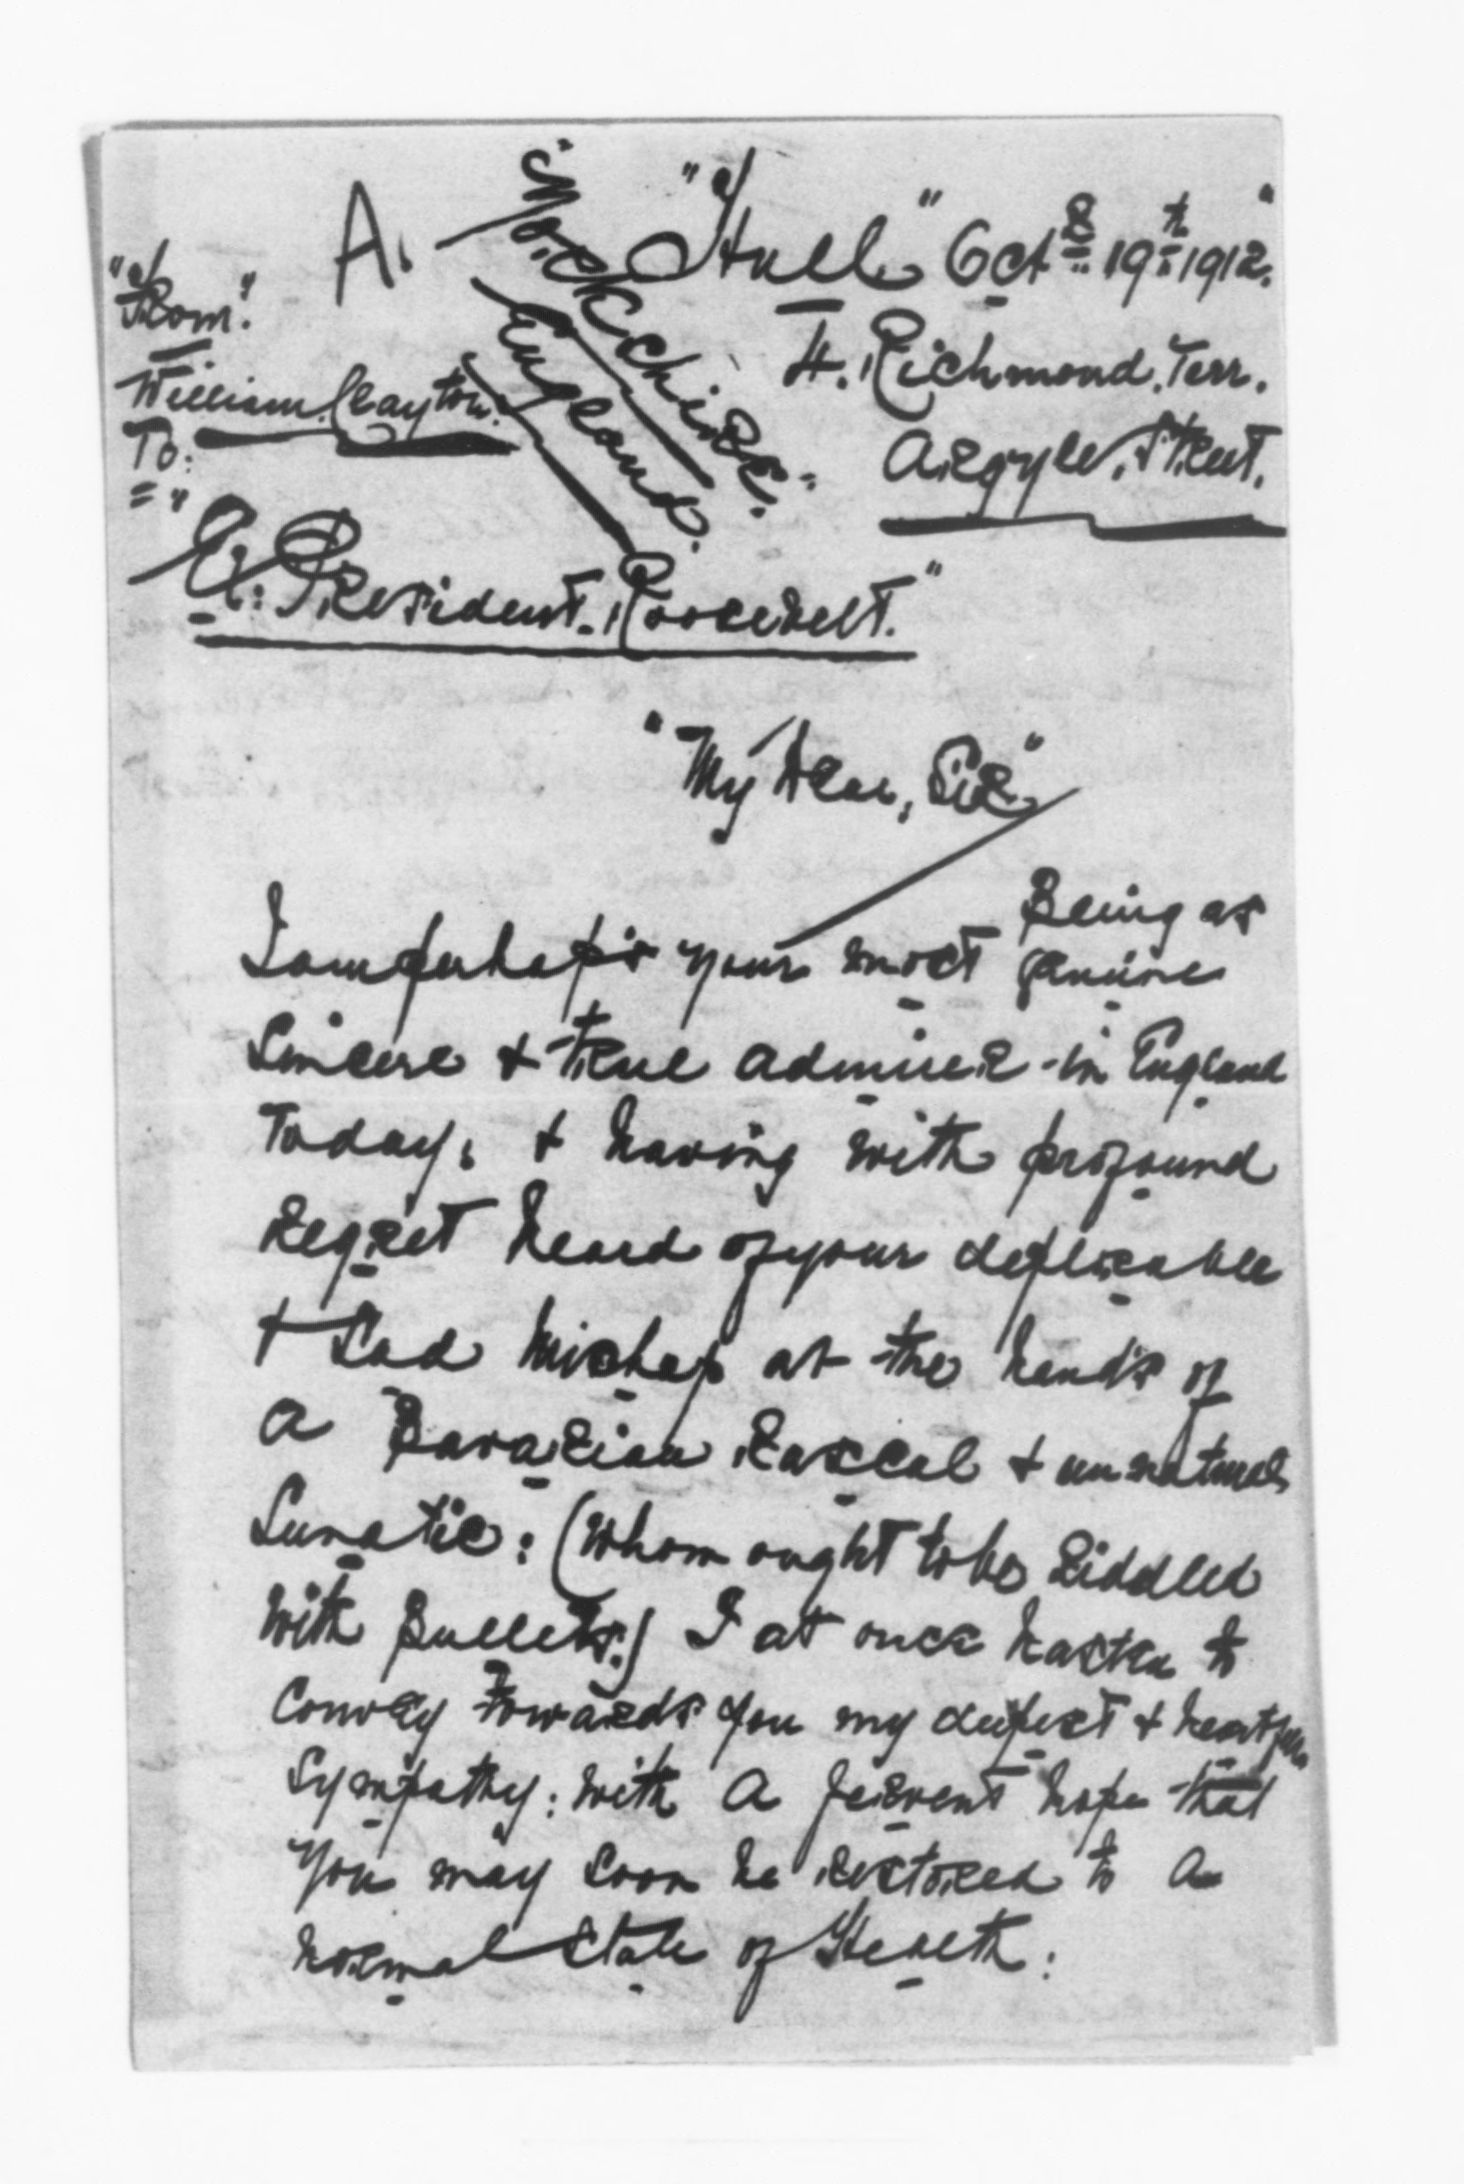 A.
"Hull" Octr 19th 1912."
"Yorkshire."
England.
4. Richmond. Terr.
Argyle. Street.
"From".
William. Clayton.
To:
Ex: President. Roosevelt."
"My Dear, Sir"
Being as
I am perhaps your most genuine
Sincere & true admirer in England
Today; & having with profound
regret heard of your deplorable
& Sad Mishap at the hands of
a Bavarian Rascal & unnatural
Lunatic: (Whom ought to be Riddled
With Bullets.) I at once hasten to
Convey Towards you my deepest & heartfelt
Sympathy: With a fervent hope that
you may soon be restored to a
normal State of Health: